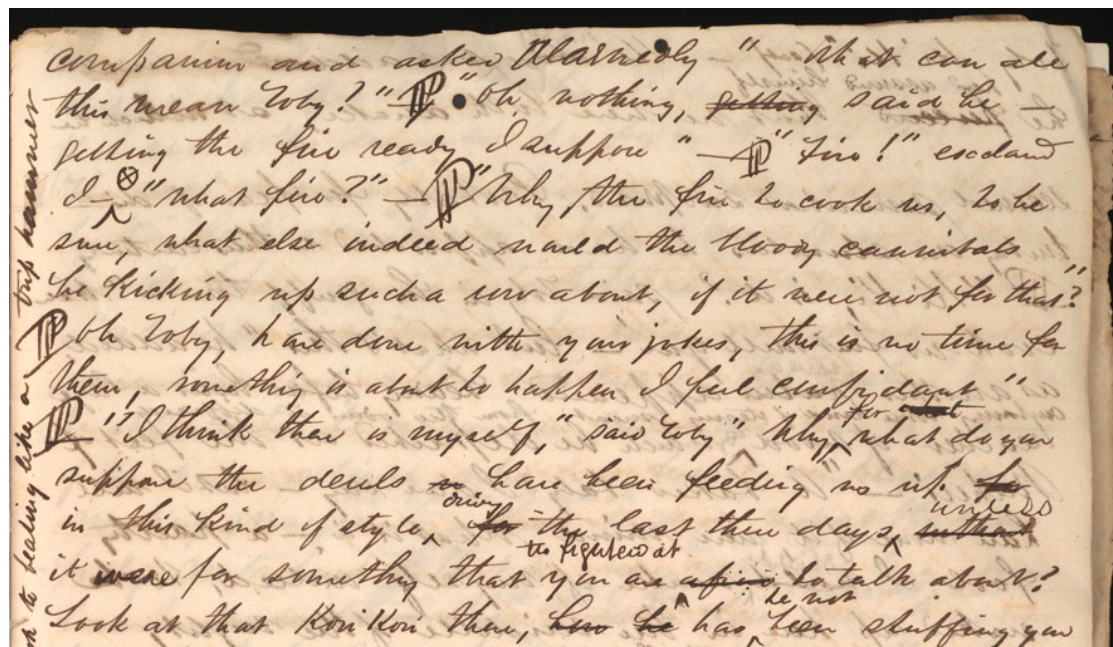 companion and asked alarmedly " What can all
this mean Toby?" — "oh nothing, getting said he —
getting the fire ready I suppose " — "Fire!" exclamd
I — "what fire?" — "Why, the fire to cook us, to be
sure, what else indeed would the bloody cannibals
be kicking up such a row about, if it were not for that?"
"Oh Toby, have done with your jokes, this is no time for
them, something is about to happen I feel confidant"
for
— "I think there is myself," said Toby " Why, what do you
suppose the devels have been feeding us up for
during unless
in this kind of style, for the last three days, without
frightend at
it were for something that you are to talk about?
be not
Look at that Kori Kori there, how he has been stuffing you
trip hammer
beating like a